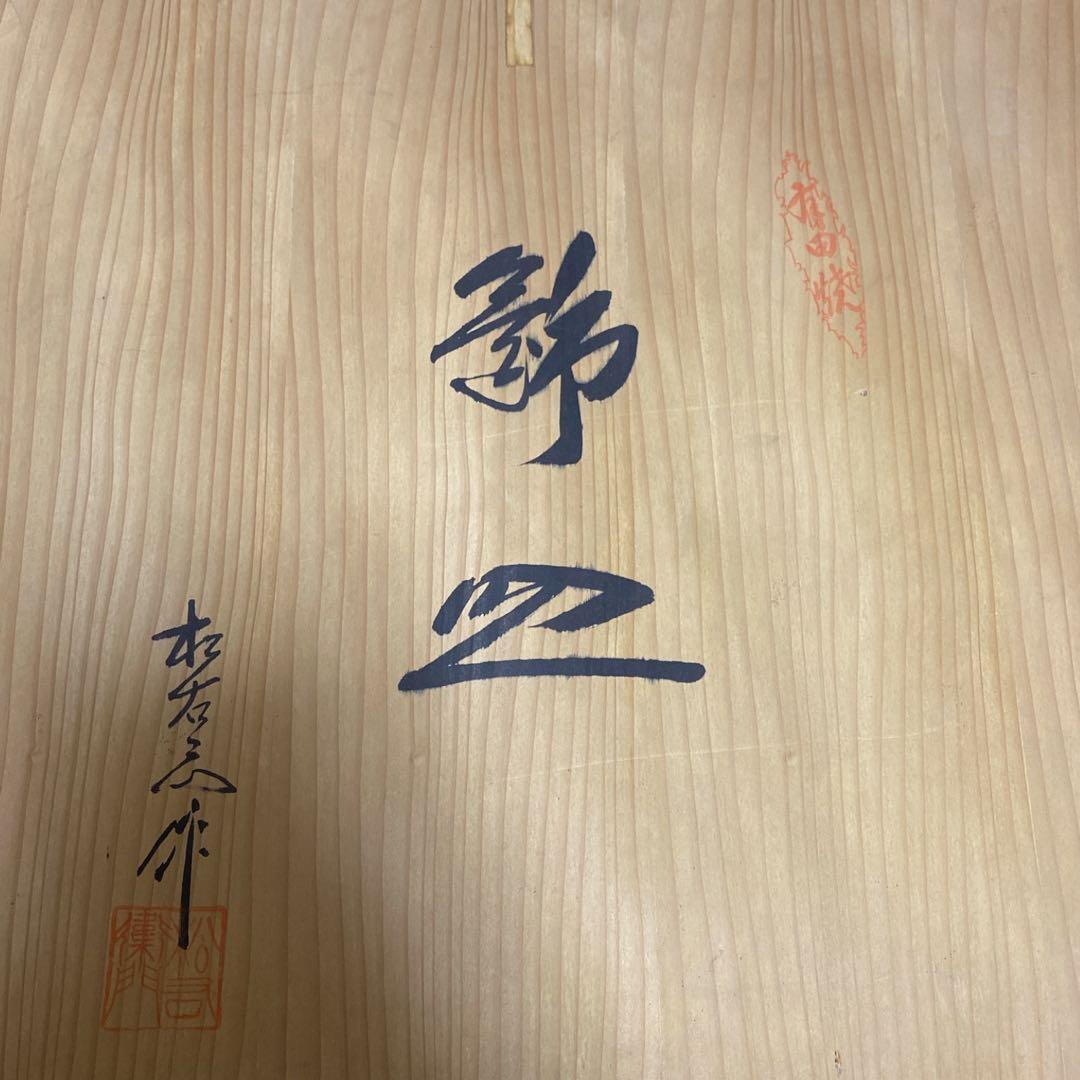 有田焼
飾皿
松右ヱ門作